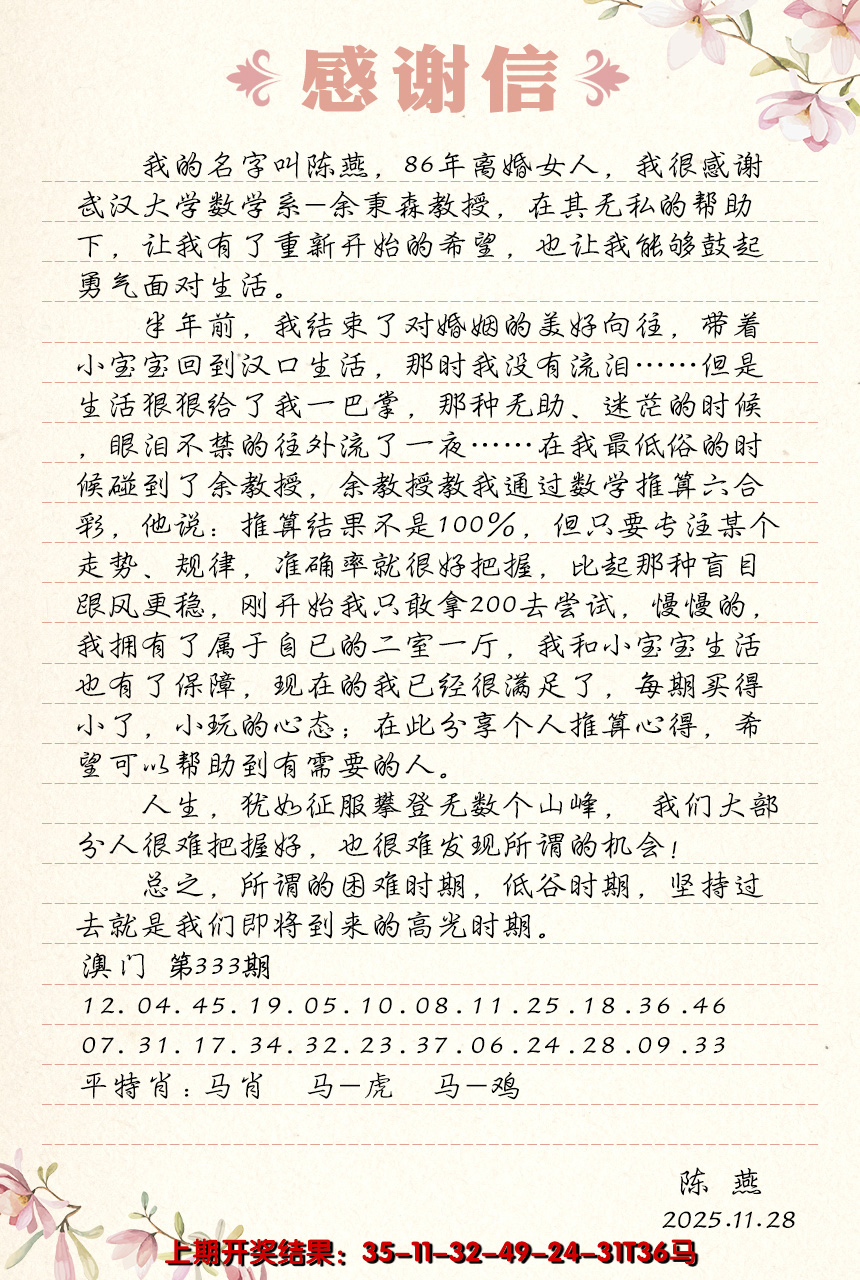 感谢信
我的名字叫陈燕，86年离婚女人，我很感谢
武汉大学数学系—余秉森教授，在其无私的帮助
下，让我有了重新开始的希望，也让我能够鼓起
勇气面对生活。
半年前，我结束了对婚姻的美好向往，带着
小宝宝回到汉口生活，那时我没有流泪……但是
生活狠狠给了我一巴掌，那种无助、迷茫的时候
，眼泪不禁的往外流了一夜……在我最低俗的时
候碰到了余教授，余教授教我通过数学推算六合
彩，他说：推算结果不是100%，但只要专注某个
走势、规律，准确率就很好把握，比起那种盲目
跟风更稳，刚开始我只敢拿200去尝试，慢慢的，
我拥有了属于自已的二室一厅，我和小宝宝生活
也有了保障，现在的我已经很满足了，每期买得
小了，小玩的心态；在此分享个人推算心得，希
望可以帮助到有需要的人。
人生，犹如征服攀登无数个山峰， 我们大部
分人很难把握好，也很难发现所谓的机会！
总之，所谓的困难时期，低谷时期，坚持过
去就是我们即将到来的高光时期。
澳门 第333期
12.04.45.19.05.10.08.11.25.18.36.46
07.31.17.34.32.23.37.06.24.28.09.33
平特肖：马肖 马—虎 马—鸡
陈 燕
2025.11.28
上期开奖结果：35-11-32-49-24-31T36马